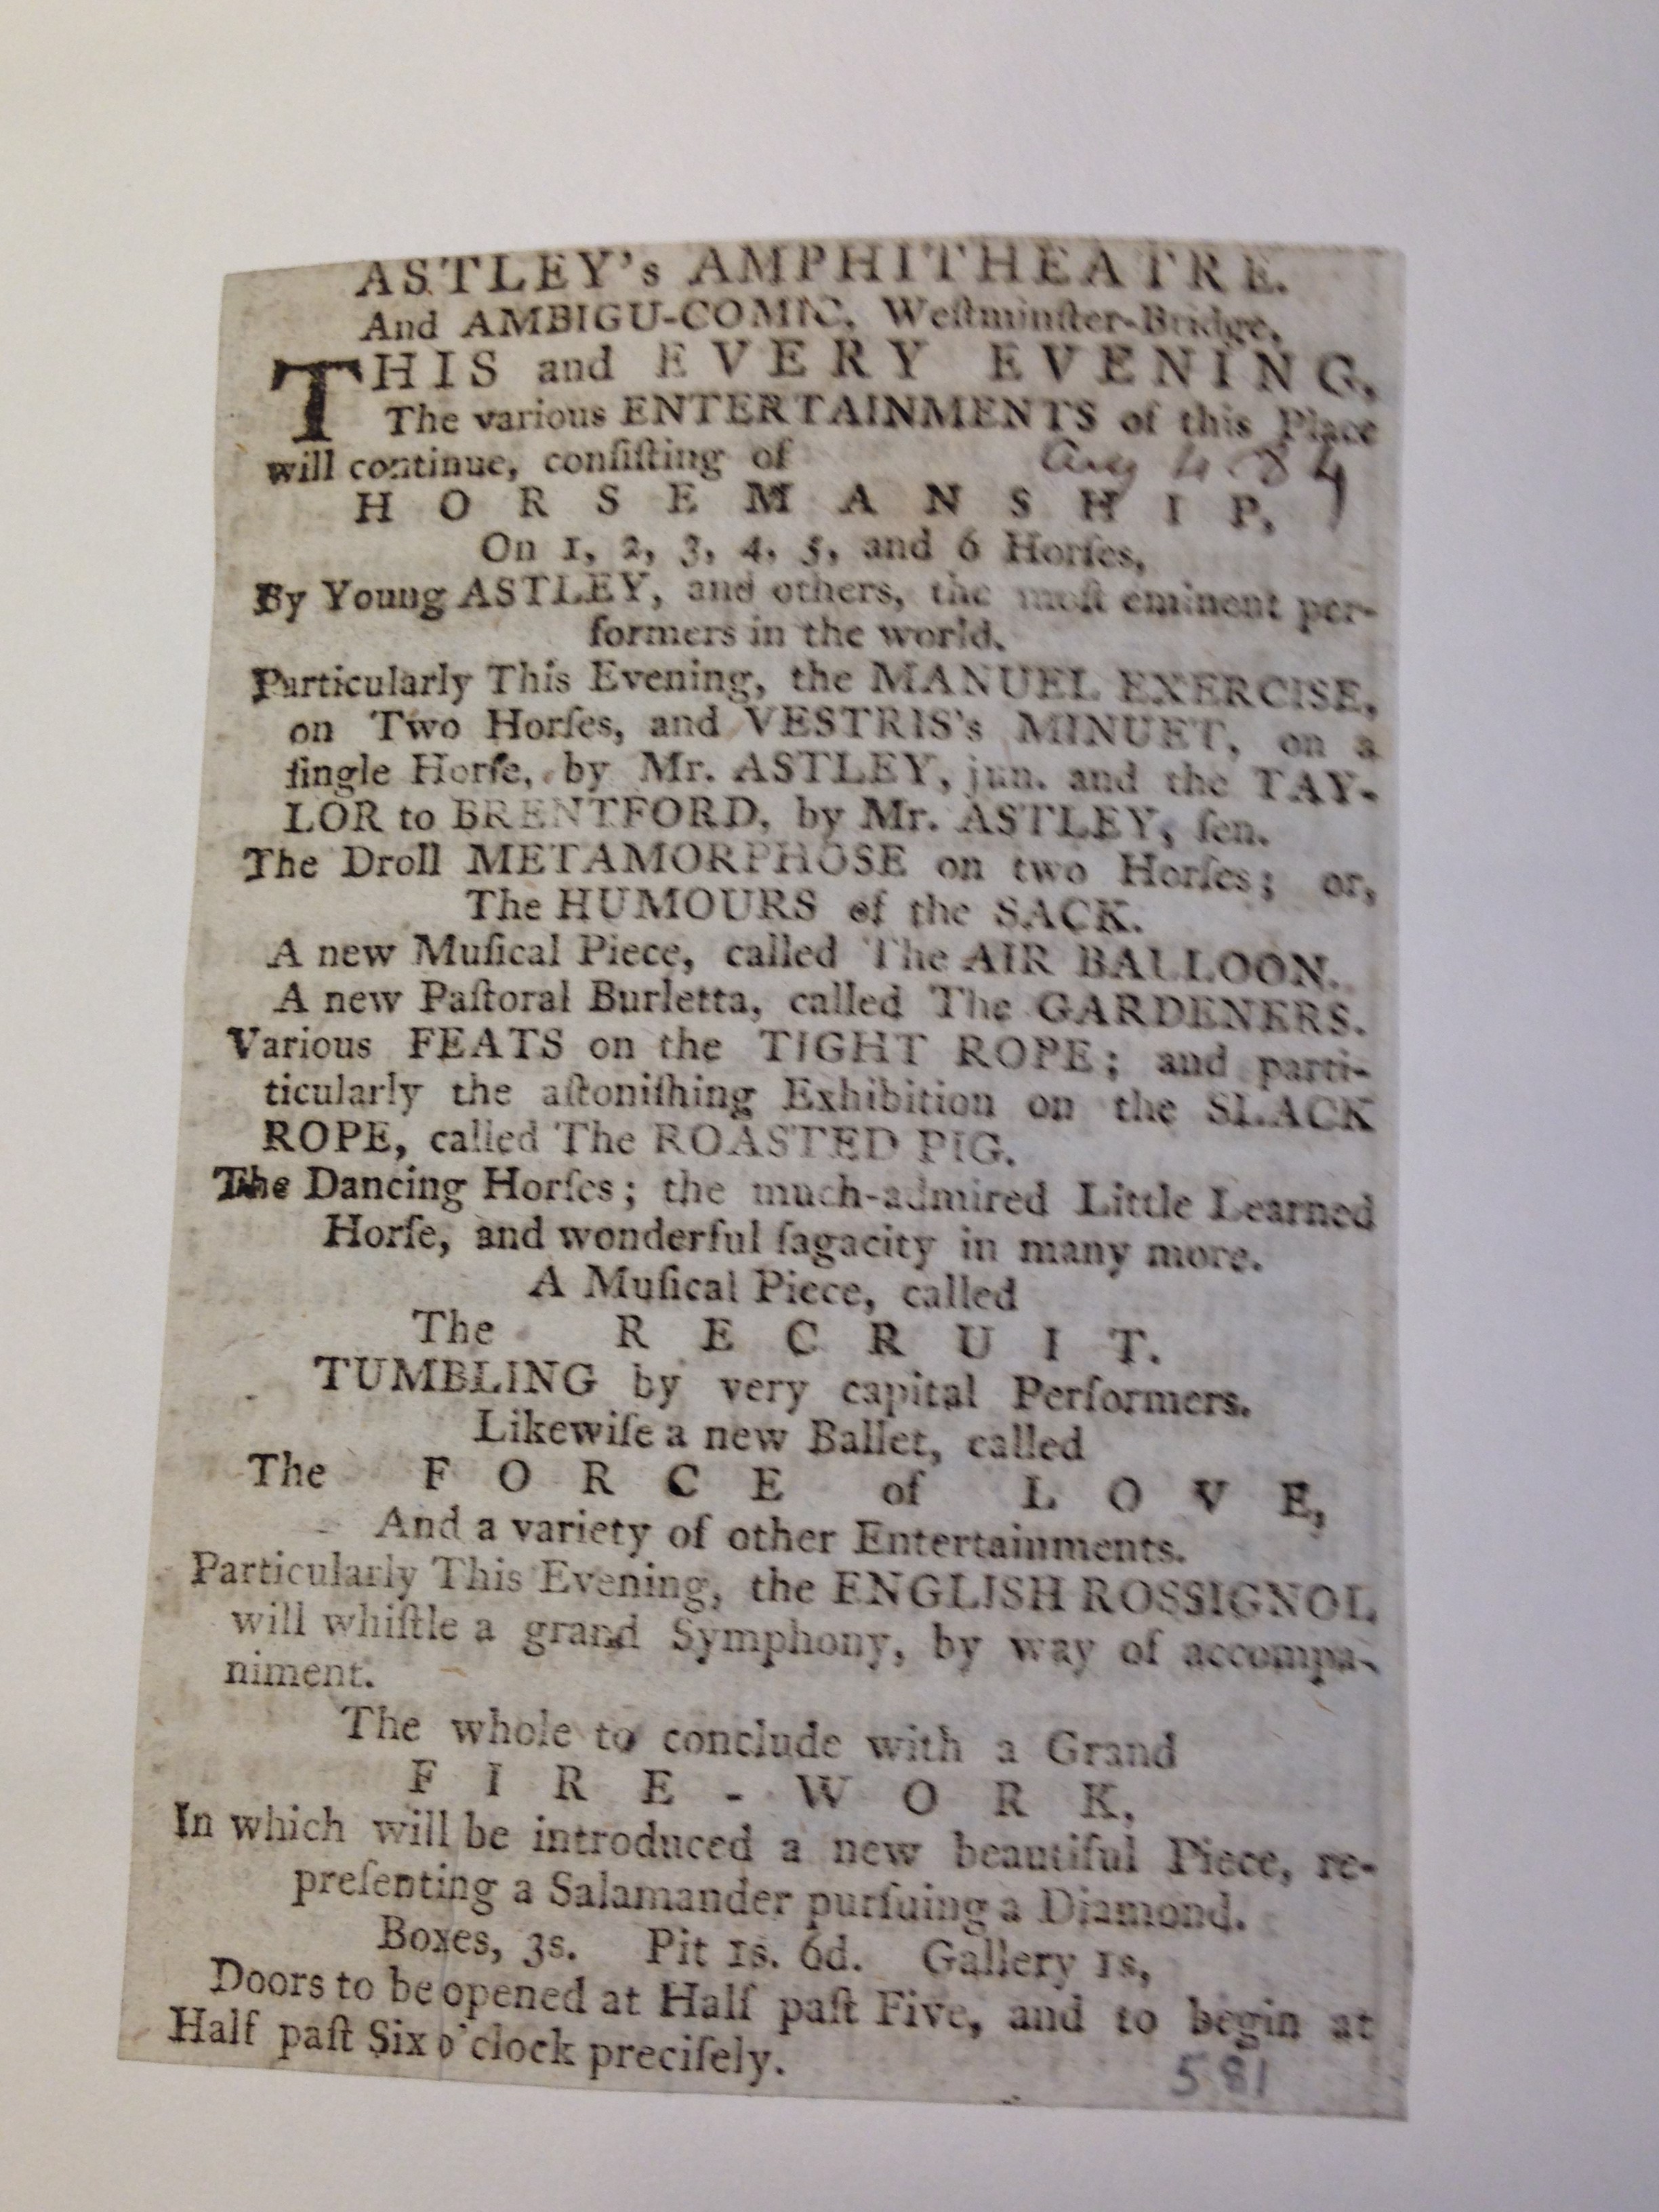 ASTLEY's AMPHITHEATRE.
And AMBIGU-COMIC, Weſtminſter-Bridge.
THIS and EVERY EVENING,
The various ENTERTAINMENTS of this Place
will continue, conſiſting of
Aug 4 84
HORSEMANSHIP,
On 1, 2, 3, 4, 5, and 6 Horſes,
By Young ASTLEY, and others, the moſt eminent per-
formers in the world.
Particularly This Evening, the MANUEL EXERCISE,
on Two Horſes, and VESTRIS's MINUET, on a
ſingle Horſe, by Mr. ASTLEY, jun. and the TAY-
LOR to BRENTFORD, by Mr. ASTLEY, ſen.
The Droll METAMORPHOSE on two Horſes; or,
The HUMOURS of the SACK.
A new Muſical Piece, called The AIR BALLOON.
A new Paſtoral Burletta, called The GARDENERS.
Various FEATS on the TIGHT ROPE; and parti-
ticularly the aſtoniſhing Exhibition on the SLACK
ROPE, called The ROASTED PIG.
The Dancing Horſes; the much-admired Little Learned
Horſe, and wonderful ſagacity in many more.
A Muſical Piece, called
The RECRUIT.
TUMBLING by very capital Performers.
Likewiſe a new Ballet, called
The FORCE of LOVE,
And a variety of other Entertainments.
Particularly This Evening, the ENGLISH ROSSIGNOL
will whiſtle a grand Symphony, by way of accompa-
niment.
The whole to conclude with a Grand
FIRE-WORK,
In which will be introduced a new beautiful Piece, re-
preſenting a Salamander purſuing a Diamond.
Boxes, 3s. Pit 1s. 6d. Gallery 1s,
Doors to be opened at Half paſt Five, and to begin at
Half paſt Six o'clock preciſely.
581